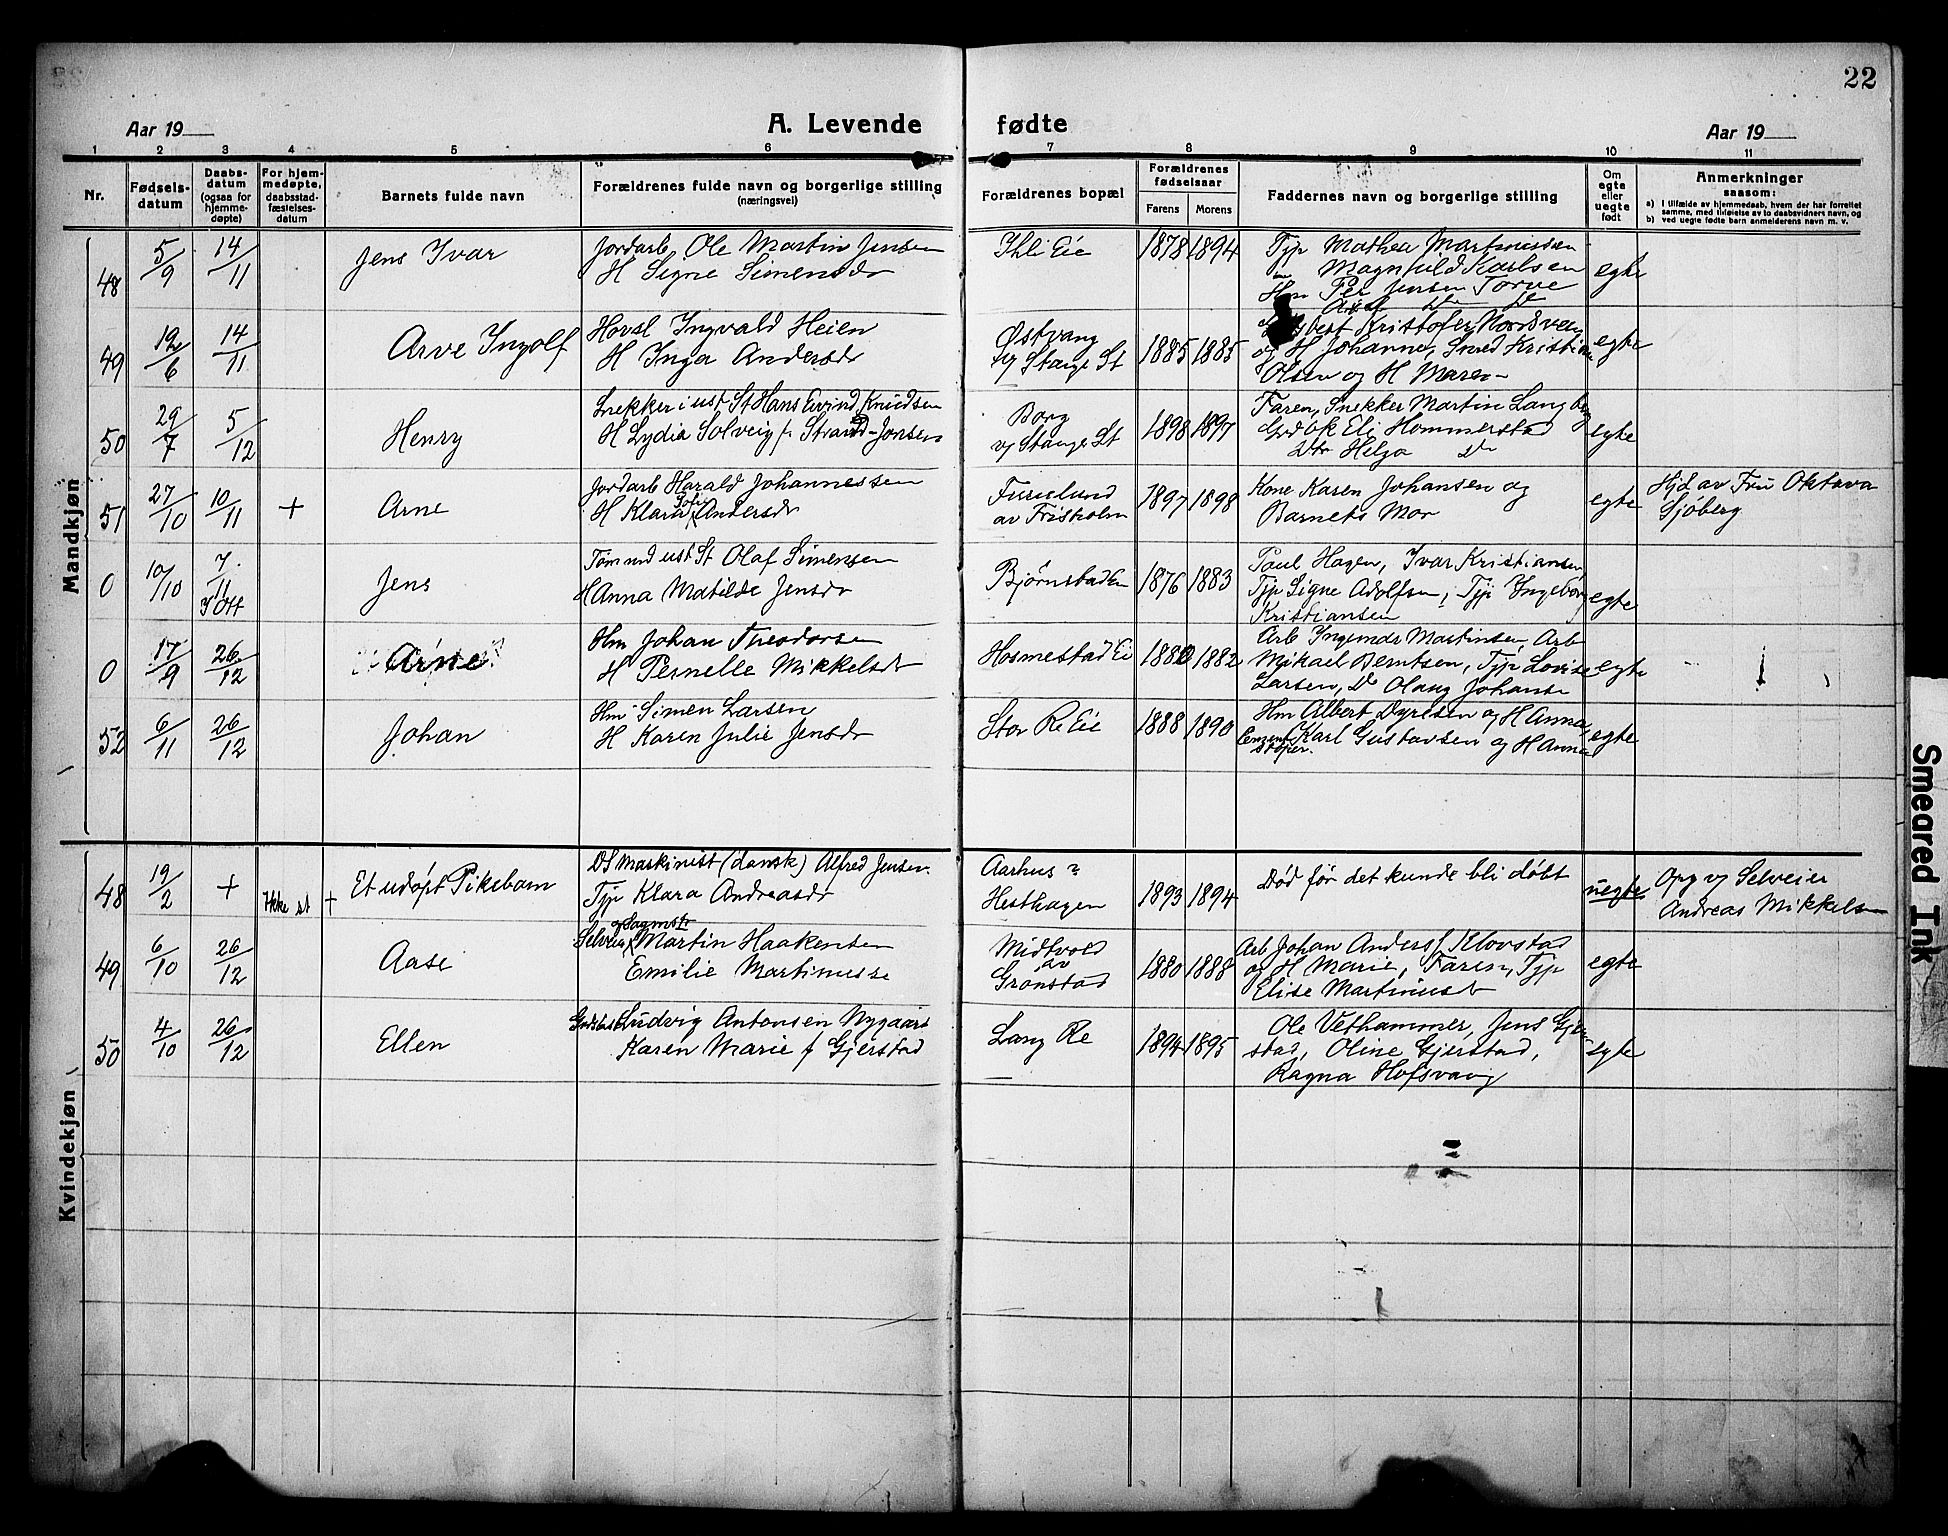 22
Aar 19
A. Levende fødte
Aar 19
1 2 3 4 5 6 7 8 9 10 11
Nr.
Fødsels-
datum
Daabs-
datum
(ogsaa for
hjemme-
døpte)
For hjem-
medøpte,
daabsstad-
fæstelses-
datum
Barnets fulde navn
Forældrenes fulde navn og borgerlige stilling
(næringsvei)
Forældrenes bopæl
Forældrenes
fødselsaar
Farens Morens
Faddernes navn og borgerlige stilling
Om
egte
eller
uegte
født
Anmerkninger
saasom:
a) I tilfælde av hjemmedaab, hvem der har forrettet
samme, med tilføielse av to daabsvidners navn, og
b) ved uegte fødte barn anmelderens navn m. v.
Mandkjøn
48 5/9 14/11 Jens Ivar
Jordarb. Ole Martin Jensen
H Signe Simensdr
Ihli Eie 1878 1894
Typ Mathea Martinussen
Magnhild Karlsen
Hm Per Jensen Torve
egte
49 12/6 14/11 Arve Ingolf
Hovsl Ingvald Heien
H Inga Andersdr
Østvang
v/ Stange St
1885 1885
Kristofer Nordsveen
og H Johanne, Smed Kristian
Olsen og H Maren
egte
50 29/7 5/12 Henry
Snekker i ust St Hans Eivind Knudsen
H Lydia Solveig f. Strand-Jonsen
Borg
v/ Stange St
1898 1897
Faren, Snekker Martin Langberg
Grdbk Eli Hommerstad
Dtr Helga Do
egte
51 27/10 10/11 + Arne
Jordarb Harald Johannessen
H Klara Sofie Andersdr
Furulund
av Frisholm
1897 1898
Kone Karen Johansen og
Barnets Mor
egte
Hjd av Fru Oktava
Sjöberg
0 10/10 7/11 Jens
Tømmd ust St Olaf Simensen
H Anna Matilde Jensdr
Bjørnstad Ei 1876 1883
Paul Hagen, Ivar Kristiansen
Typ Signe Adolfsen, Typ Ingeborg
Kristiansen
egte
0 17/9 26/12 Arne
Hm Johan Theodorsen
H Pernelle Mikkelsdr
Hosmestad Ei 1880 1882
Arb Ingemar Martinsen, Arb
Mikael Berntsen, Typ Lovise
Larsen, Do Olaug Johanse
egte
52 6/11 26/12 Johan
Hm Simen Larsen
H Karen Julie Jensdr
Stor Re Eie 1888 1890
Hm Albert Dyresen og H Anna,
Cement støper. Karl Gustavsen og H Anna
egte
Kvindekjøn
48 19/2 + Ikke st + Et udöpt Pikebarn
DS Maskinist (dansk) Alfred Jensen
Typ Klara Andreasdr
Aarhus ?
Hesthagen
1893 1894
Död før det kunde bli döbt
uegte
Opg v/ Selveier
Andreas Mikkelsen
49 6/10 26/12 Aase
og Sagmstr
Selveier Martin Haakensen
Emilie Martinusse
Midtvold
av
Grønstad
1880 1888
Arb Johan Anders f Klovstad
og H Marie, Faren, Typ
Elise Martinusdr
egte
50 4/10 26/12 Ellen
Ludvig Antonsen Nygaard
Karen Marie f Gjerstad
Lang Re 1894 1895
Ole Vethammer, Jens Gjer-
stad, Oline Gjerstad,
Ragna Hofsvang
egte
Smeared Ink